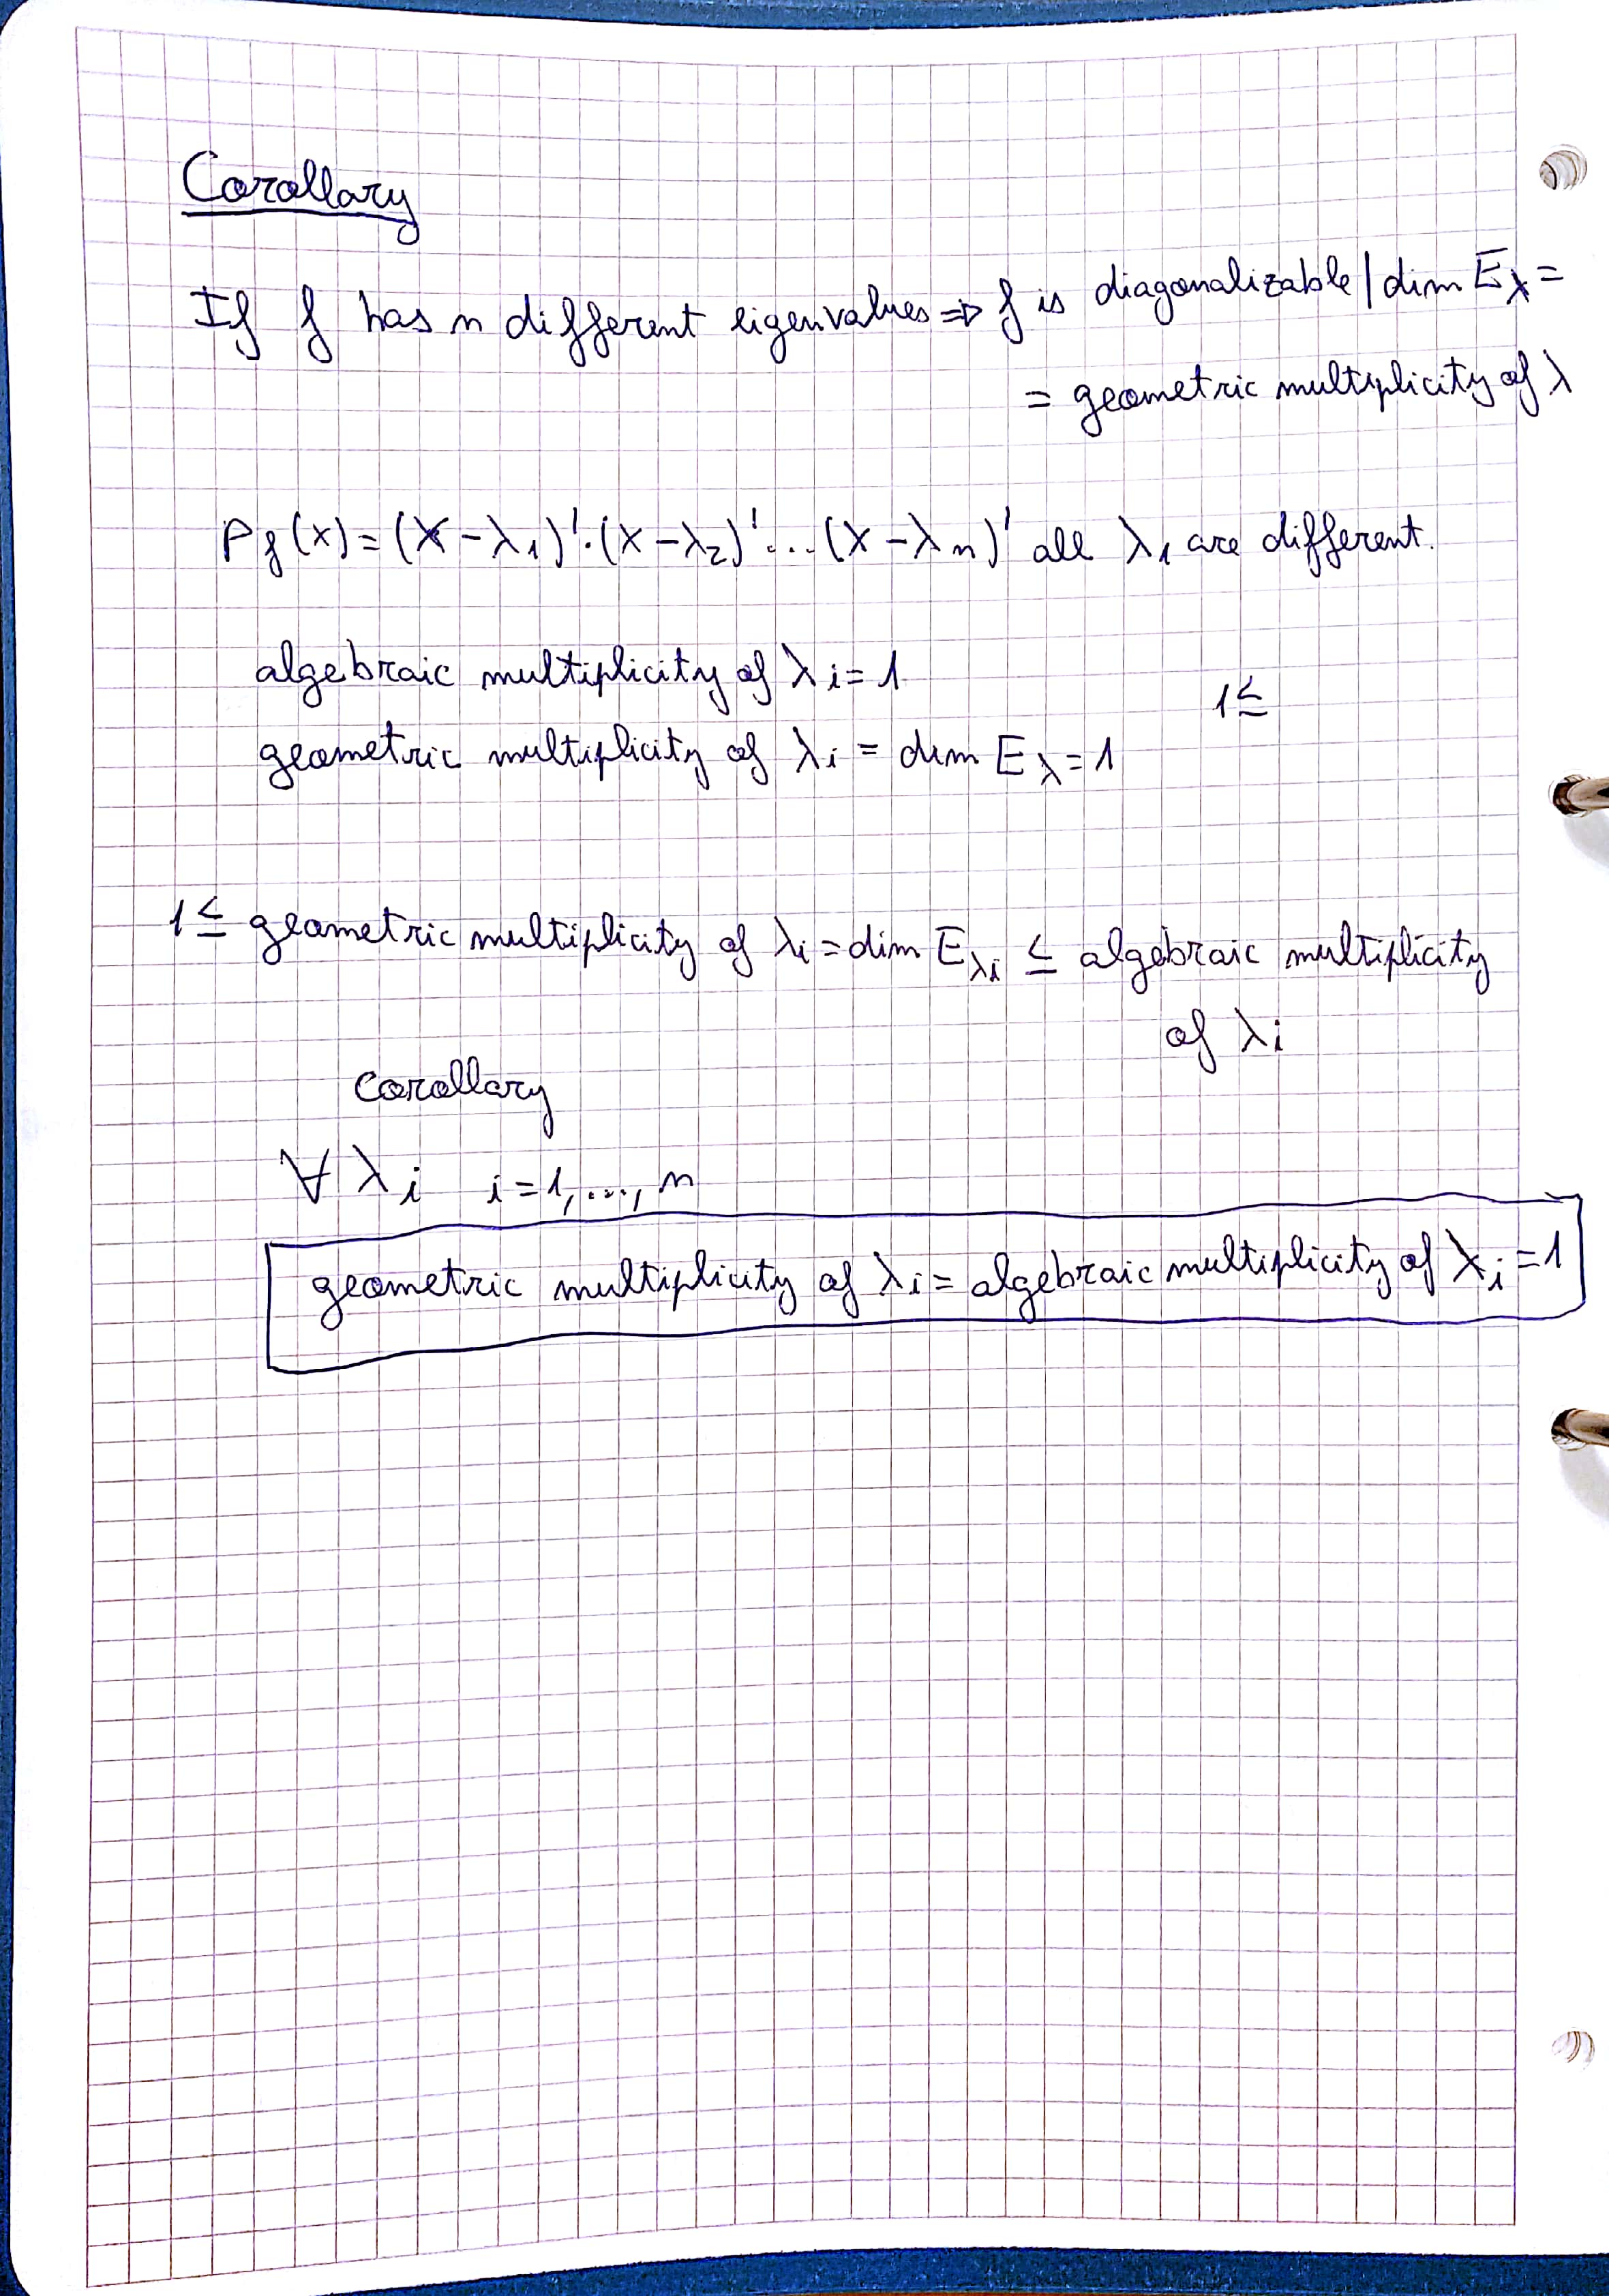 Corollary
If f has n different eigenvalues => f is diagonalizable | dim Eλ =
= geometric multiplicity of λ
Pf(x) = (x - λ1)¹·(x - λ2)¹·...(x - λn)¹ all λi are different.
algebraic multiplicity of λi = 1
1 ≤
geometric multiplicity of λi = dim Eλ = 1
1 ≤ geometric multiplicity of λi = dim Eλi ≤ algebraic multiplicity
of λi
Corollary
∀ λi i = 1, ..., n
geometric multiplicity of λi = algebraic multiplicity of λi = 1